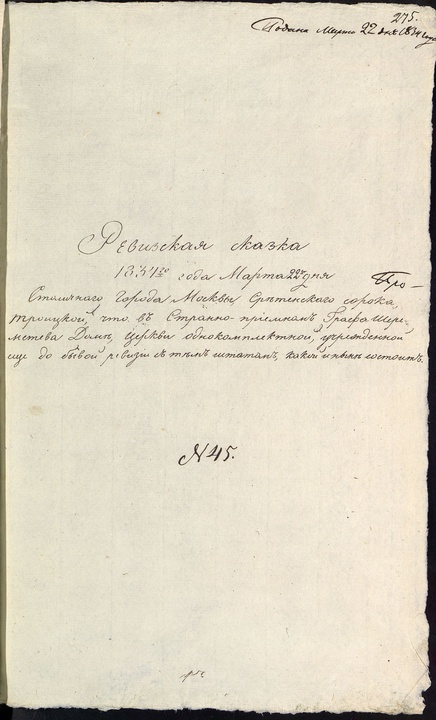 275.
Подана Марта 22 дня 1834 года
Ревизская сказка
1834го года Марта 22го дня
Про-
Столичного города Москвы Сретенского сорока,
Троицкой, что въ Странно-приемномъ Графа Шере-
метева Домѣ, Церкви однокомплектной, учрежденной
еще до бывой ревизіи съ тѣмъ штатомъ, какой и нынѣ состоитъ.
N 45.